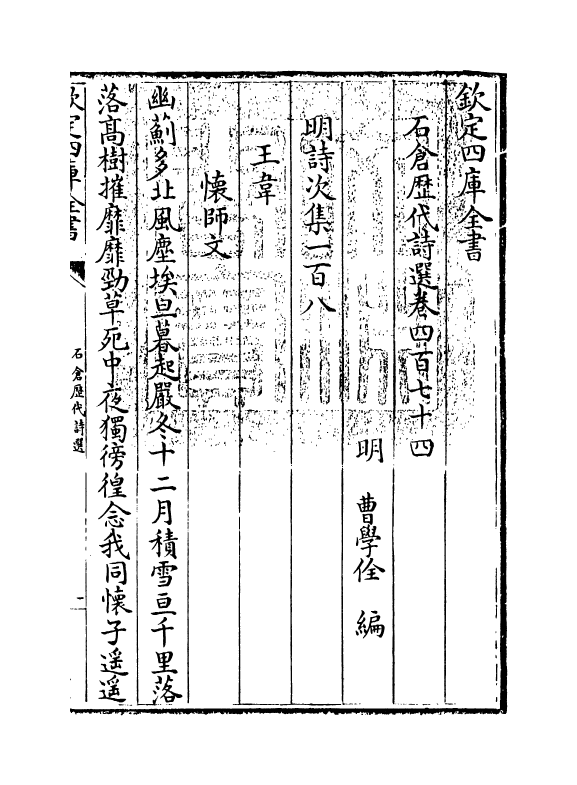 欽定四庫全書
石倉歴代詩選卷四百七十四
明　曹學佺　編
明詩次集一百八
王韋
懷師文
幽薊多北風塵埃旦暮起嚴冬十二月積雪亘千里落
落髙樹摧靡靡勁草死中夜獨徬徨念我同懷子遥遥
欽定四庫全書
石倉歴代詩選
一